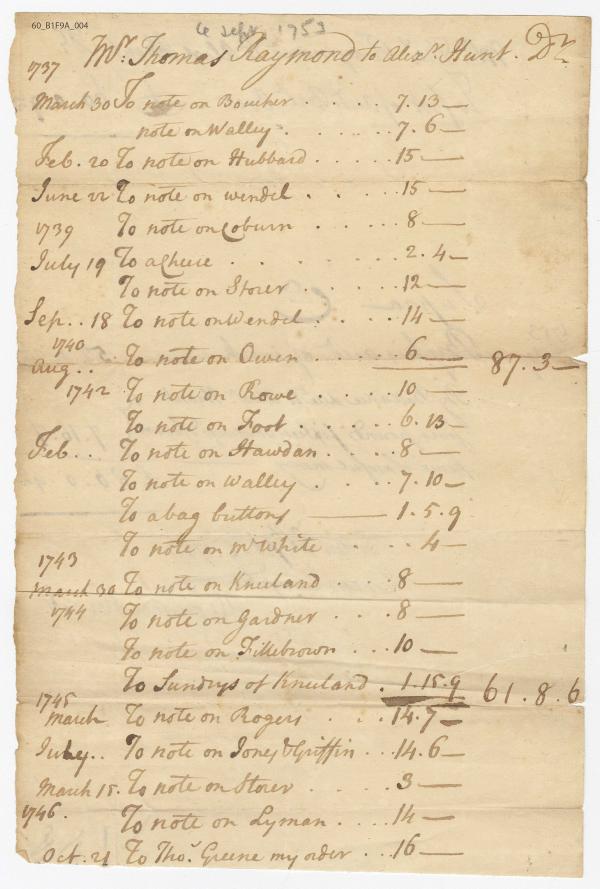 60_B1F9A_004
6 Sept. 1753
Mr. Thomas Raymond to Alexr. Hunt. Dr.
1737
March 30 To note on Boucher . . . . . 7.13 —
note on Walley . . . . . . 7.6 —
Feb. 20 To note on Hubbard . . . . . 15 —
June 22 To note on wendel . . . . . 15 —
1739 To note on Coburn . . . . 8 —
July 19 To a Cheese . . . . . . . 2.4 —
To note on Storer . . . . . 12 —
Sep.. 18 To note on Wendel . . . . 14 —
1740
Aug.. To note on Owen . . . . . 6 — 87.3 —
1742 To note on Rowe . . . . . 10 —
To note on Foot . . . . . 6.13 —
Feb.. To note on Hawdan . . . 8 —
To note on Walley . . . . 7.10 —
To a bag buttons — 1.5.9
To note on mr White . . . 4 —
1743
March 30 To note on Kneeland . . . 8 —
1744 To note on Gardner . . . 8 —
To note on Fillebrown . . . 10 —
To Sundrys of Kneeland . 1.15.9 61.8.6
1745
March To note on Rogers . . . 14.7 —
July.. To note on Jones & Griffin . . . 14.6 —
March 15. To note on Storer . . . 3 —
1746. To note on Lyman . . . . 14 —
Oct. 21 To Tho.s Greene my order . . . 16 —